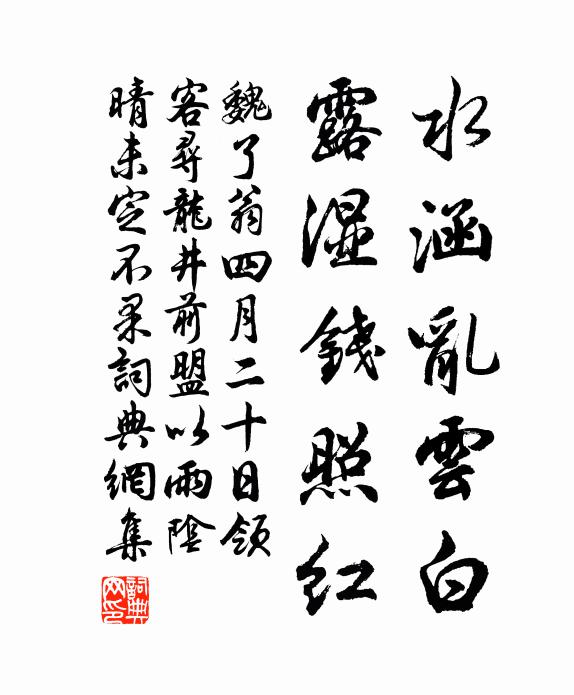 水涵亂雲白
露溼錢照红
魏了翁四月二十日領
客尋龍井前盟以雨陰
晴未定不果詞典網集
詞典网印